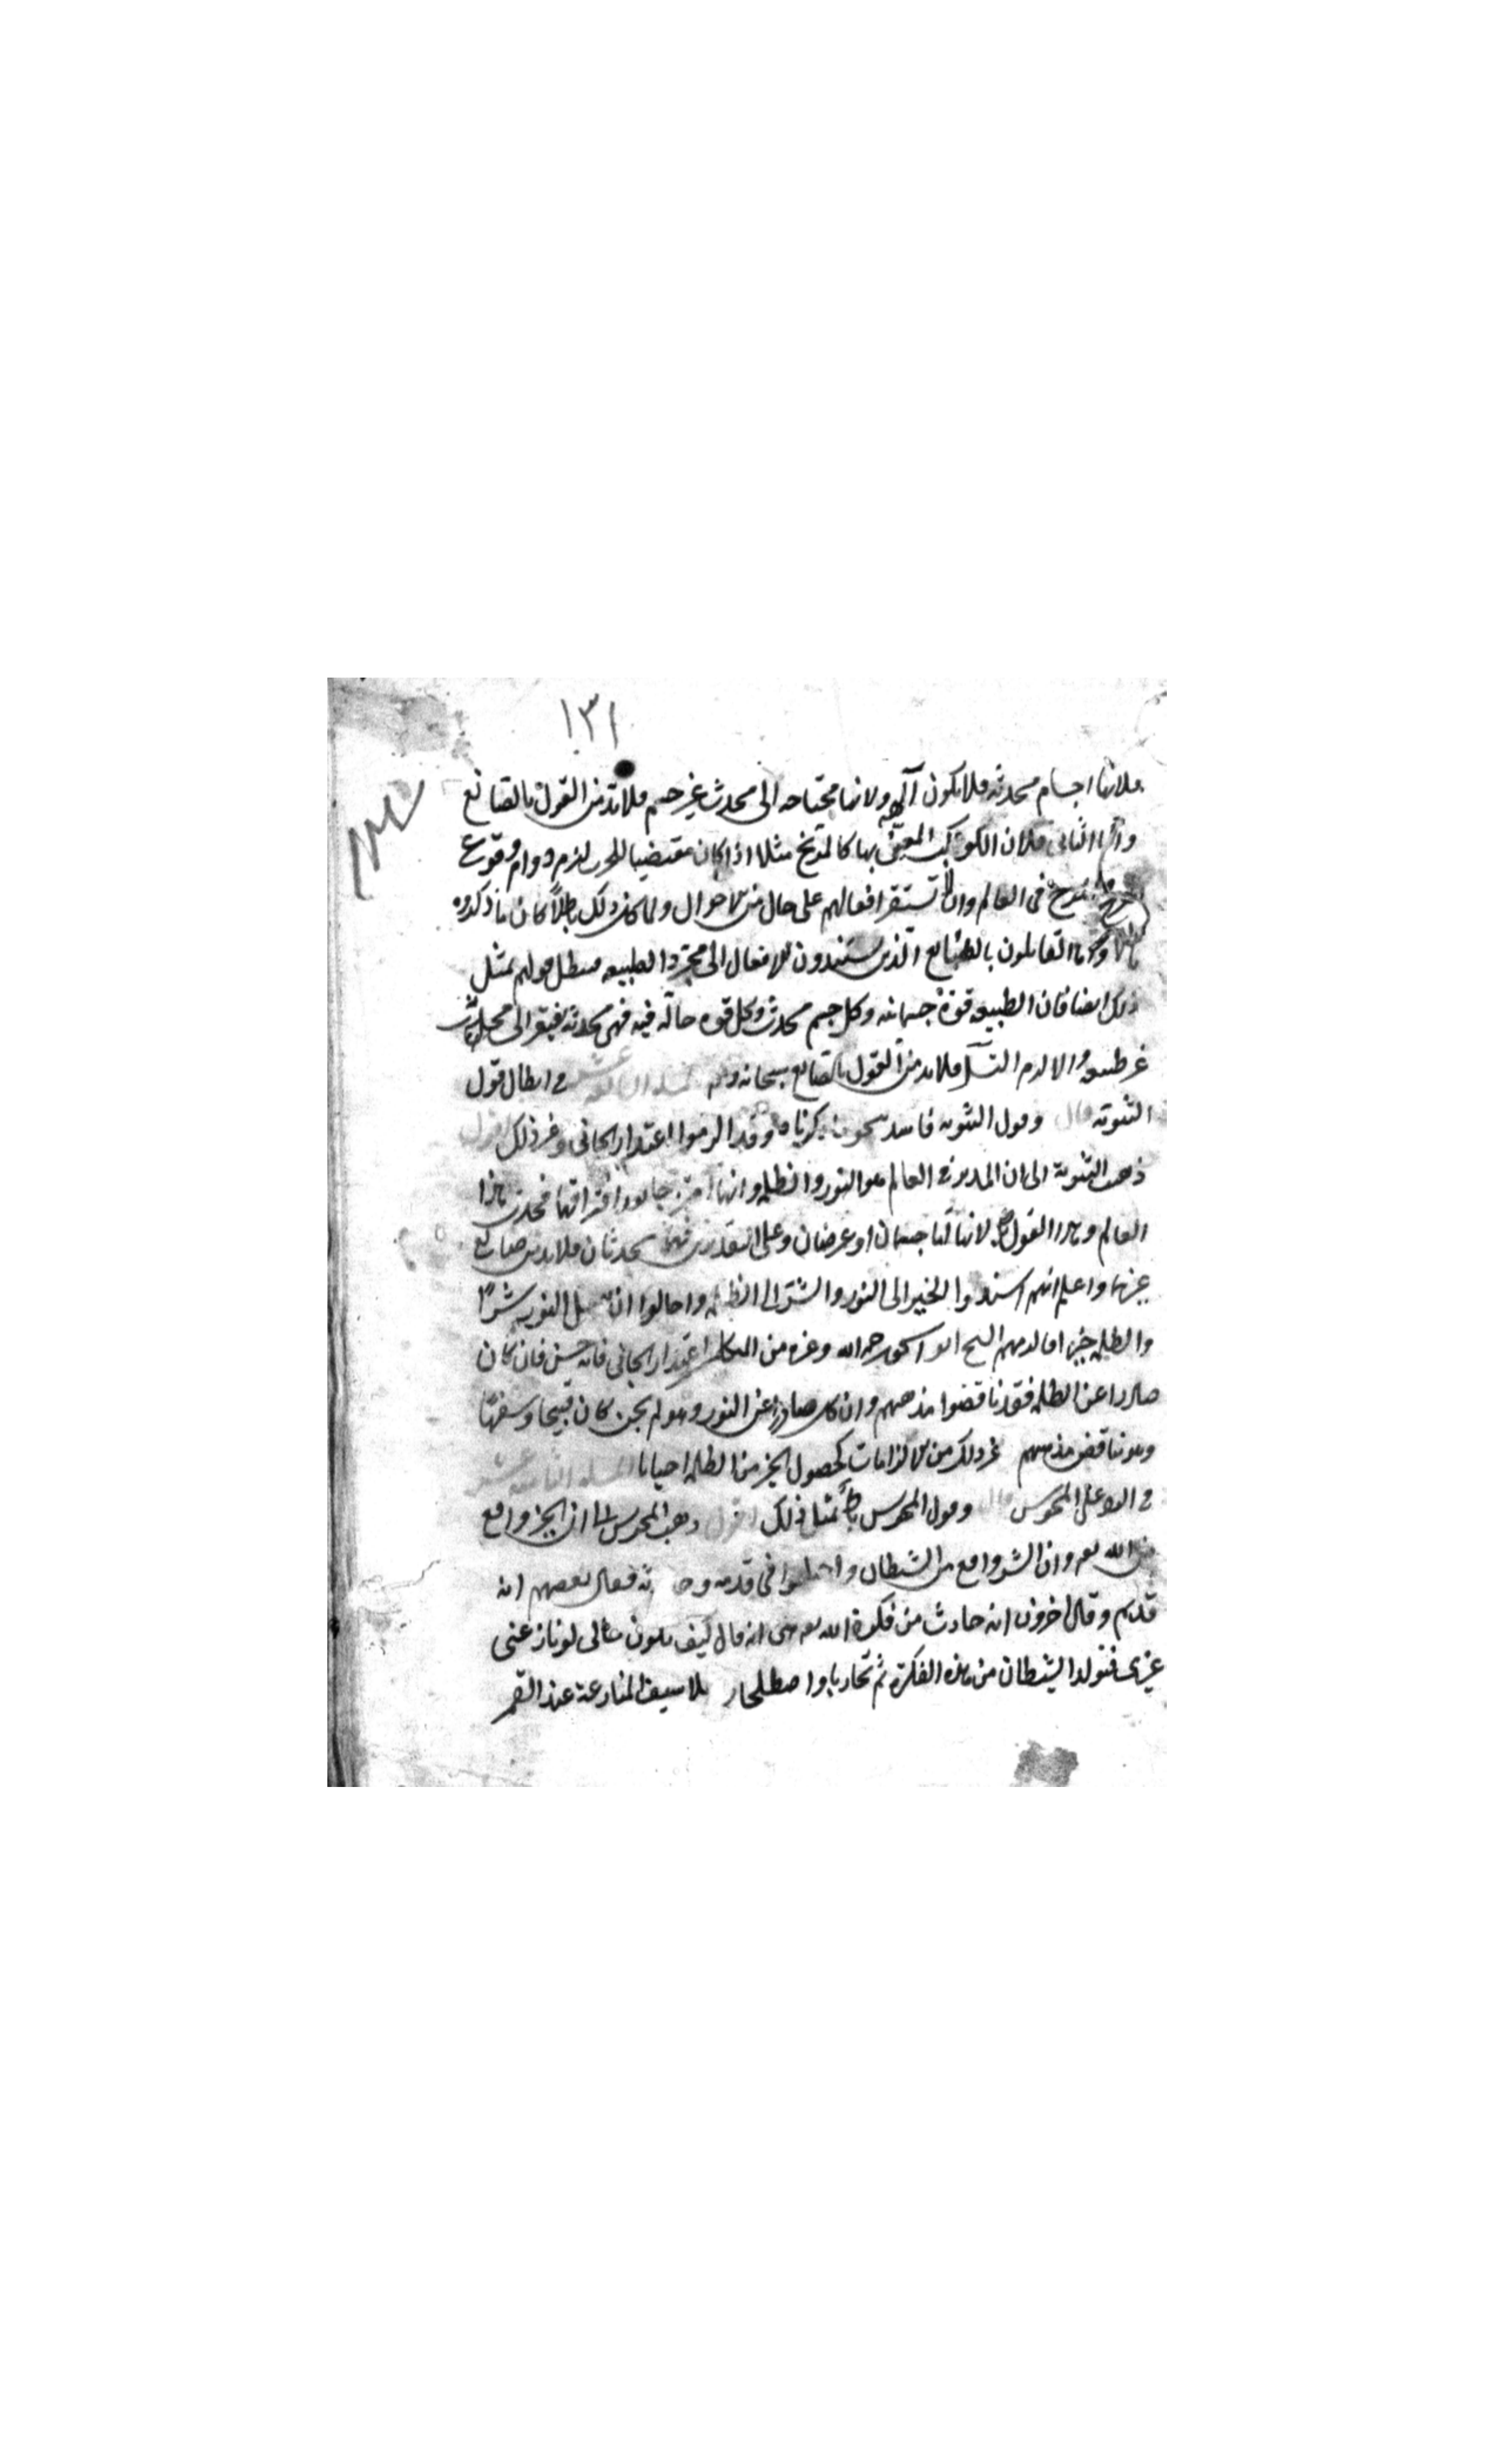 ١٣١
فلانها اجسام محدثة فلا يكون آلهة ولانها محتاجه الى محدث غير جسم فلا بد من القول بالصانع
واما الثانى فلان الكواكب المعين بها كالمريخ مثلا اذا كان مقتضيا للحرب لزم دوام وقوع
الهرج فى العالم وان لا تستقر افعالهم على حال من الاحوال ولما كان ذلك باطلاً كان ما ذكروه
باطلا واما القايلون بالطبايع الذين يستندون الافعال الى مجرد الطبيعه فيبطل قولهم بمثل
ذلك ايضا فان الطبيعه قوة جسمانيه وكل جسم محدث وكل قوه حالّه فيه فهى محدثه يفتقر الى محدث
غير طبيعه والا لزم التسلسل فلا بد من القول بالصانع سبحانه و المسئله السابعه عشر فى ابطال قول
الثنويه قال وقول الثنويه فاسد بنحو ما ذكرناه وقد الزموا اعتذار الجانى وغير ذلك اقول
ذهب الثنوية الى ان المدبر فى العالم هو النور والظلمه وانهما امتزجا بعد افتراقهما فحدث هذا
العالم وهذا القول لانهما اما جسمان او عرضان وعلى التقديرين فهما محدثان فلا بد من صانع
غيرهما واعلم انهم اسندوا الخير الى النور والشر الى الظلمه واحالوا ان النور شرًا
والظلمه خيرا فالزمهم الشيخ ابو اسحق رحمه الله وغيره من اعتذار الجانى فانه حسن فان كان
صادرا عن الظلمه فقد ناقضوا مذهبهم وان كان صادرا عن النور وهو لم يجن كان قبيحا وسفهًا
وهو يناقض مذهبهم غير ذلك من الالزامات كحصول الخير من الظلمه احيانا المسئله الثامنه عشر
فى الرد على المجوس قال وقول المجوس باطل بمثل ذلك اقول ذهب المجوس الى ان الخير واقع
من الله تعه وان الشر واقع من الشيطان واختلفوا فى قدمه وحدوثه فقال بعضهم انه
قديم وقال اخرون انه حادث من فكرة الله تعه حتى انه قال كيف يكون حالى لو نازعنى
غيرى فتولد الشيطان من هذه الفكرة ثم تحاربا واصطلحا المنازعة عند القمر